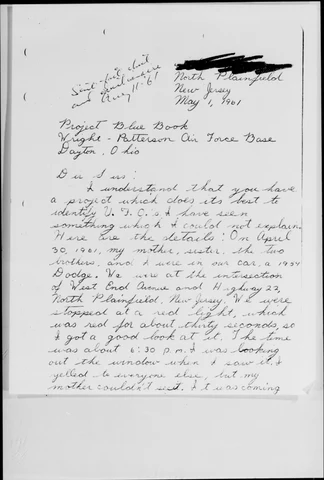 Sent fact sheet
and
Aug 11-61
North Plainfield
New Jersey
May 1, 1961
Project Blue Book
Wright - Patterson Air Force Base
Dayton, Ohio
Dear Sirs:
I understand that you have
a project which does its best to
identify U.F.O.s I have seen
something which I could not explain.
Here are the details: On April
30, 1961, my mother, sister, the two
brothers, and I were in our car, a 1954
Dodge. We were at the intersection
of West End Avenue and Highway 22,
North Plainfield, New Jersey. We were
stopped at a red light, which
was red for about thirty seconds, so
I got a good look at it. The time
was about 6:30 p.m. I was looking
out the window when I saw it. I
yelled to everyone else, but my
mother couldn't see it. It was coming